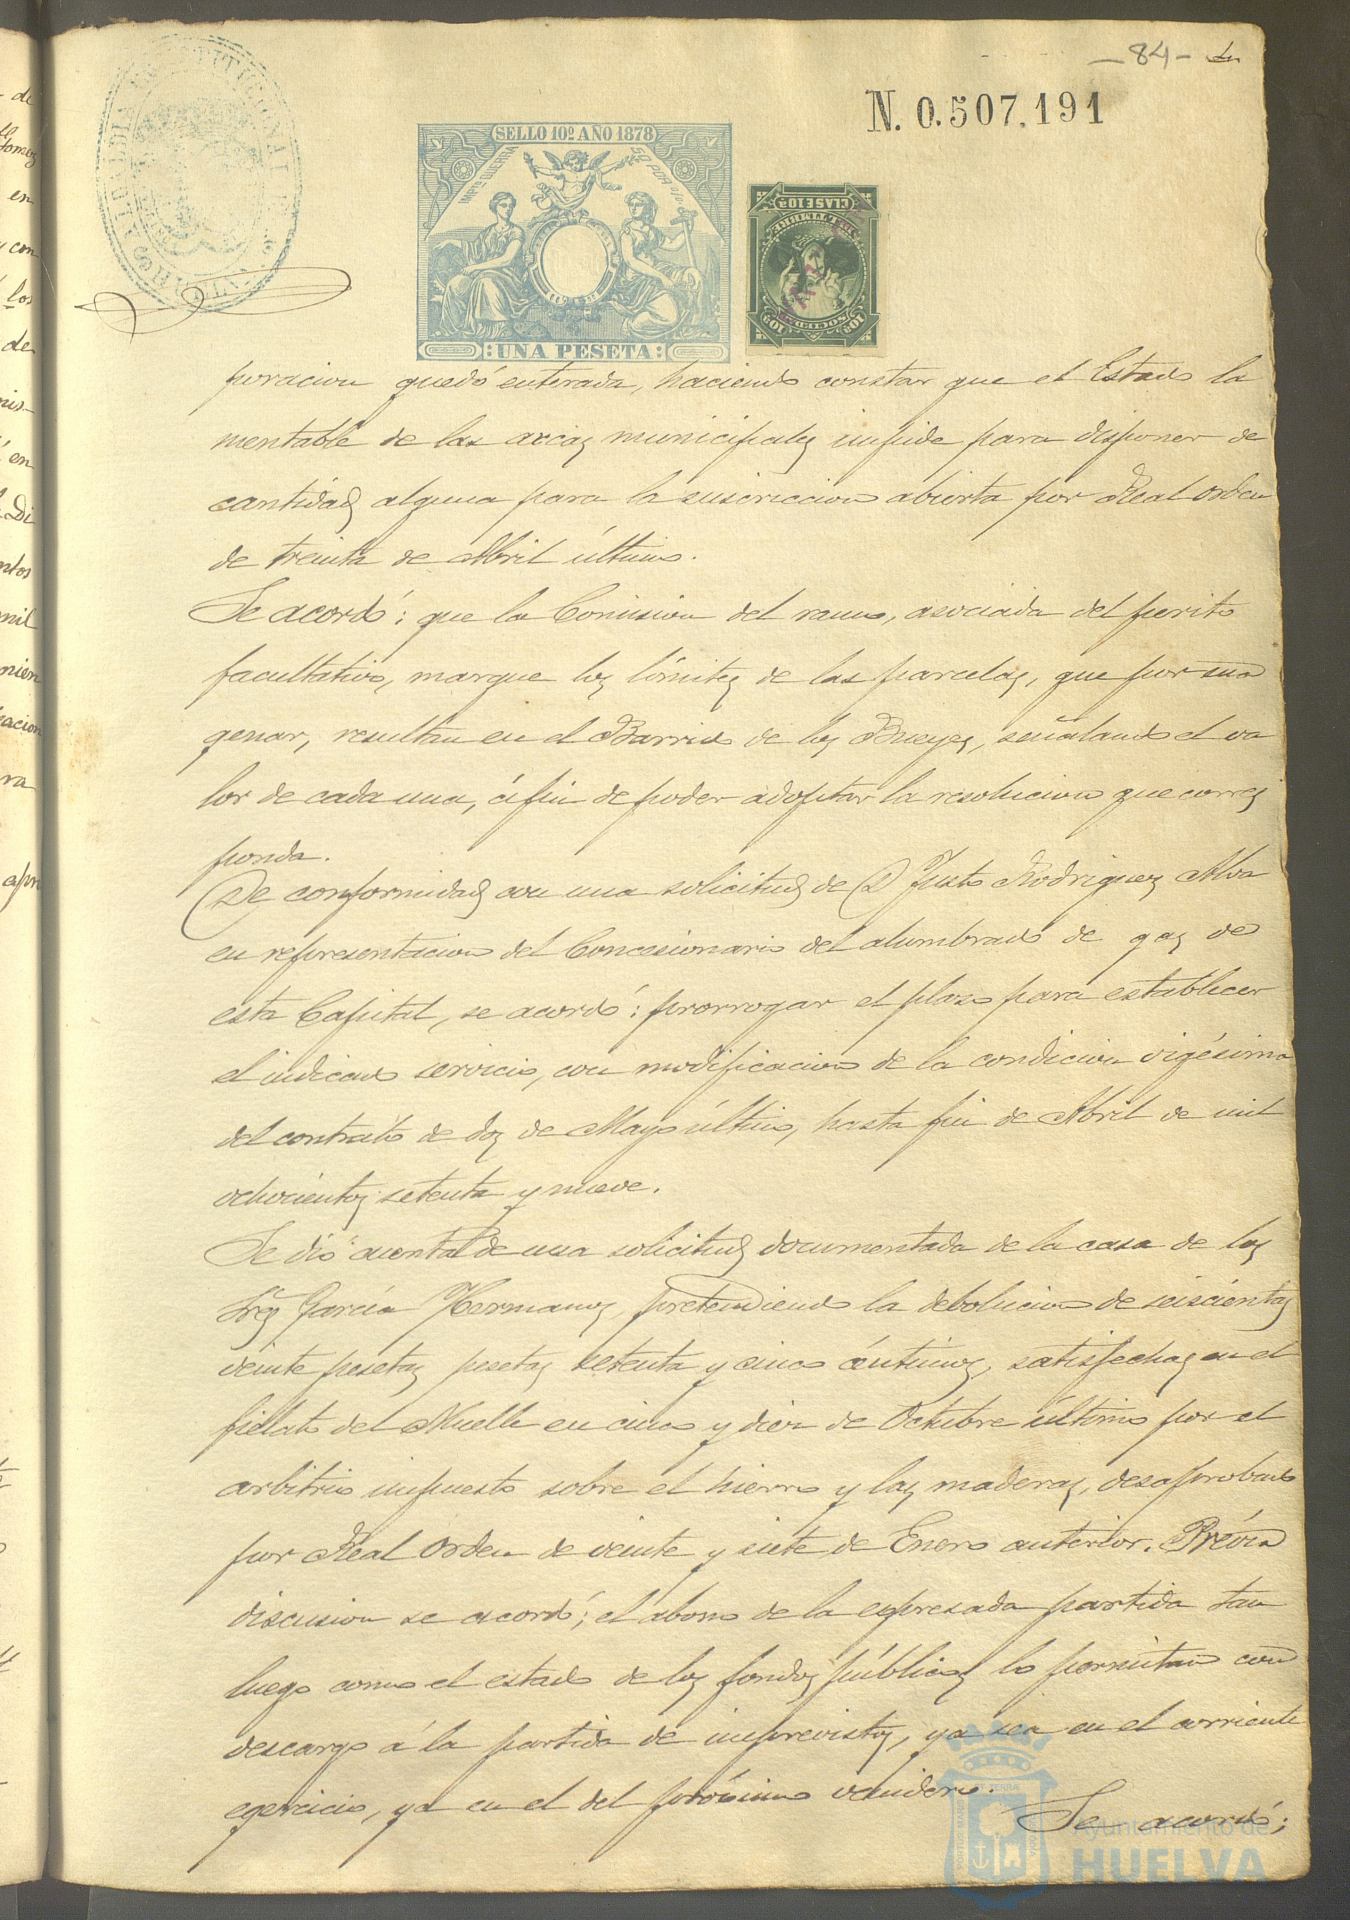 -84-
N. 0.507,191
ALCALDIA CONSTITUCIONAL
SELLO 10º AÑO 1878
IMPTO GUERRA
50 POR %
UNA PESETA
CLASE 10ª
TIMBRE
SOCIEDAD
poracion quedó enterada, haciendo constar que el Estado la
mentable de las arcas municipales impide para disponer de
cantidad alguna para la suscriccion abierta por Real orden
de treinta de Abril último.
Se acordó: que la Comision del ramo, asociada del perito
facultativo, marque los límites de las parcelas, que por ena
genar, resultan en el Barrio de los Bueyes, señalando el va
lor de cada una, á fin de poder adoptar la resolucion que corres
ponda.
De conformidad con una solicitud de D Justo Rodriguez Alva
en representacion del Concesionario del alumbrado de gas de
esta Capital, se acordó: prorrogar el plazo para establecer
el indicado servicio, con modificacion de la condicion vigésima
del contrato de dos de Mayo último, hasta fin de Abril de mil
ochocientos setenta y nueve.
Se dió cuenta de una solicitud documentada de la casa de los
Sres García Hermanos, pretendiendo la debolucion de seiscientas
veinte pesetas pesetas setenta y cinco céntimos, satisfechas en el
fielato del Muelle en cinco y diez de Octubre último por el
arbitrio impuesto sobre el hierro y las maderas, desaprobado
por Real orden de veinte y siete de Enero anterior. Prévia
discusion se acordó; el abono de la espresada partida tan
luego como el estado de los fondos públicos lo permitan con
descargo á la partida de imprevistos, ya sea en el corriente
egercicio, ya en el del próximo venidero.
Se acordó;
Ayuntamiento de
HUELVA